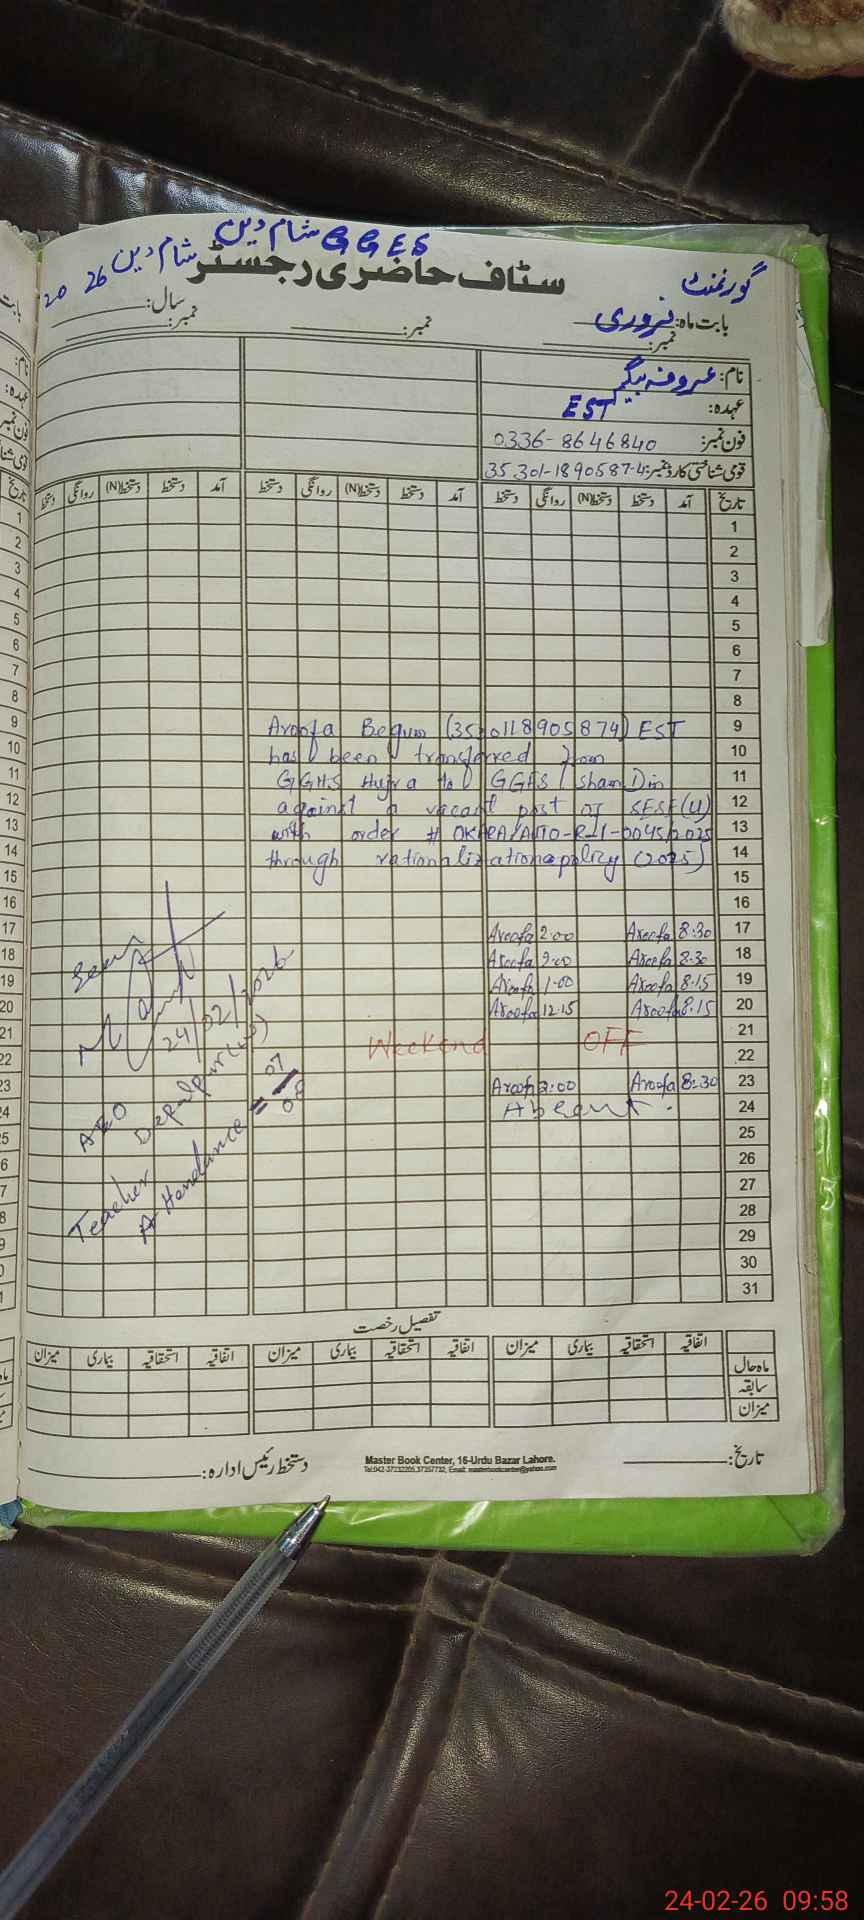 گورنمنٹ GGES شام دین
سٹاف حاضری رجسٹر شام دین
بابت ماہ: فروری سال: 20 26
نمبر: نمبر: نمبر:
نام: عروفہ بیگم
عہدہ: EST
فون نمبر: 0336-8646840
قومی شناختی کارڈ نمبر: 35301-1890587-4
تاریخ آمد دستخط دستخط(N) روانگی دستخط آمد دستخط دستخط(N) روانگی دستخط آمد دستخط دستخط(N) روانگی دستخط
1
2
3
4
5
6
7
8
9 Aroofa Begum (3530118905874) EST
10 has been transferred from
11 GGHS Hujra to GGES Sham Din
12 against a vacant post of SESE(U)
13 with order # OKARA/AMO-R-II-0045/2025
14 through rationalization policy (2025)
15
16
17 Aroofa 2:00 Aroofa 8:30
18 Aroofa 2:00 Aroofa 8:30
19 Aroofa 1:00 Aroofa 8:15
20 Aroofa 12:15 Aroofa 8:15
21 Weekend OFF
22
23 Aroofa 2:00 Aroofa 8:30
24 Absent.
25
26
27
28
29
30
31
Seen
24/02/2026
AEO
Depalpur
Teacher
Attendance = 07/08
تفصیل رخصت
اتفاقیہ استحقاقیہ بیماری میزان اتفاقیہ استحقاقیہ بیماری میزان اتفاقیہ استحقاقیہ بیماری میزان
ماہ حال
سابقہ
میزان
تاریخ: دستخط رئیس ادارہ:
Master Book Center, 16-Urdu Bazar Lahore.
Tel:042-37232205,37357732, Email: masterbookcenter@yahoo.com
24-02-26 09:58